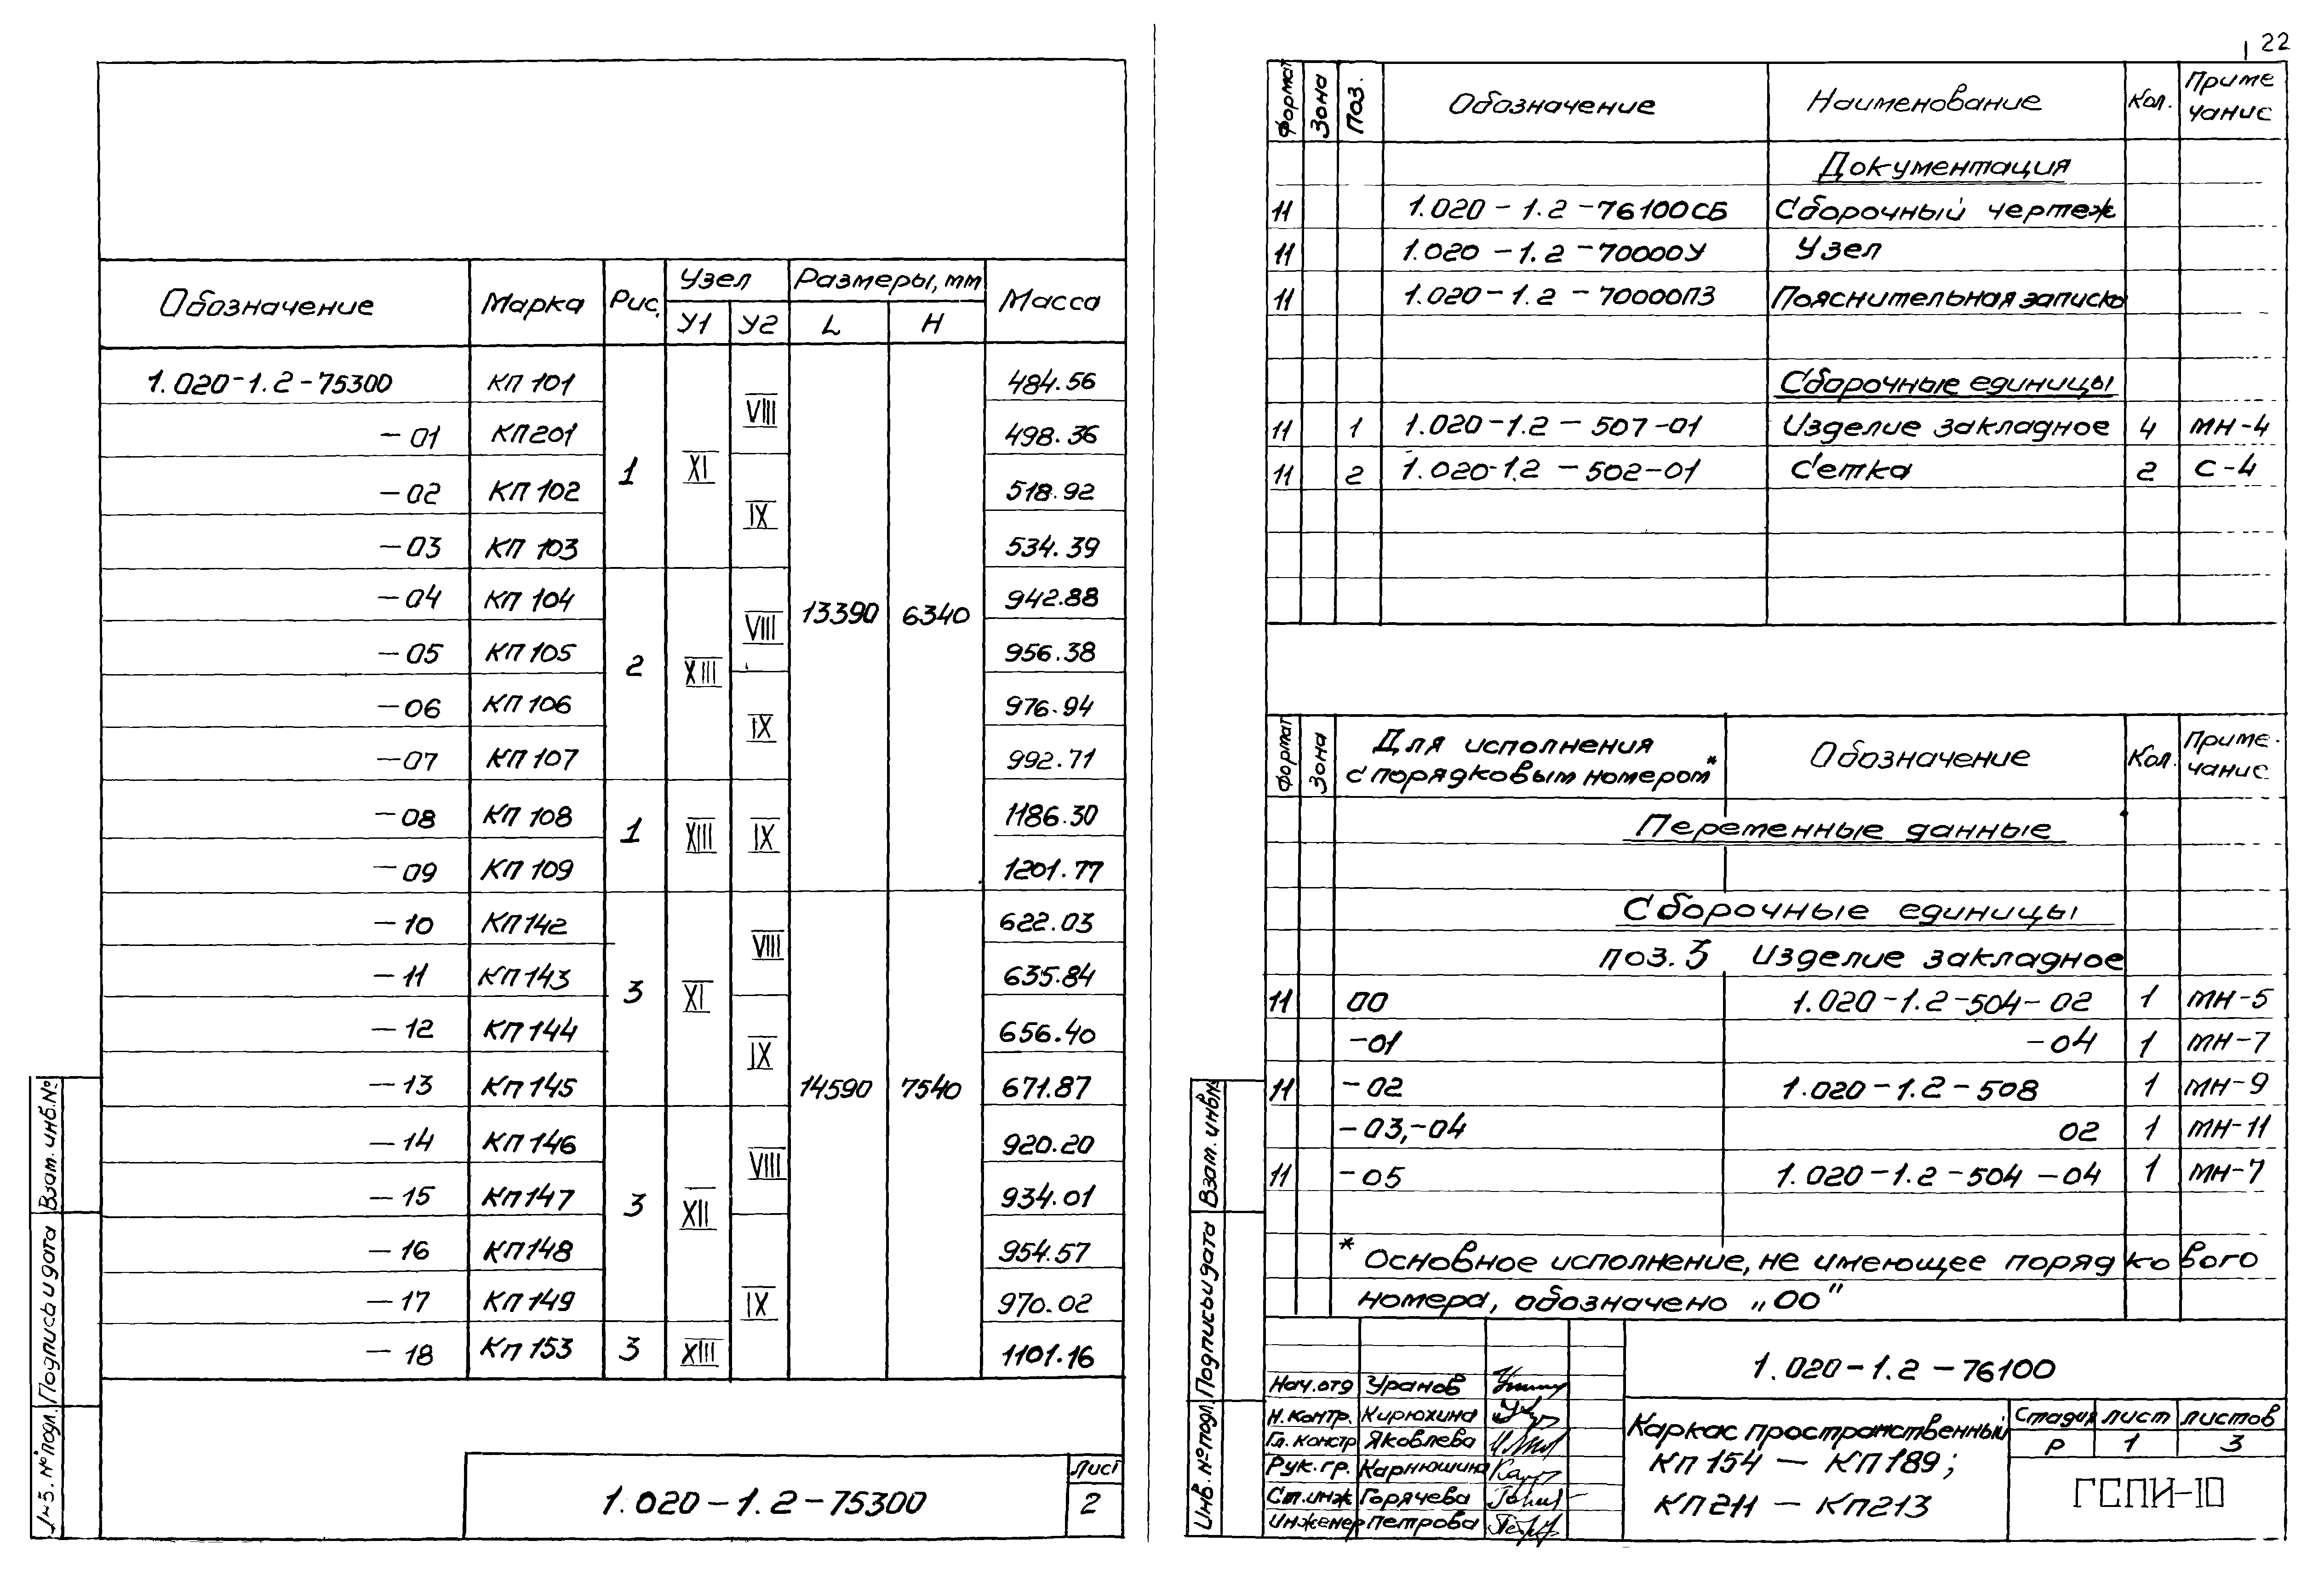 22
Обозначение Марка Рис. Узел Размеры, мм Масса
У1 У2 L H
1.020-1.2-75300 КП 101 484.56
VIII
-01 КП201 498.36
1 XI
-02 КП 102 518.92
IX
-03 КП 103 534.39
-04 КП 104 942.88
13390 6340
VIII
-05 КП 105 956.38
2 XIII
-06 КП 106 976.94
IX
-07 КП 107 992.71
-08 КП 108 1186.30
1 XIII IX
-09 КП 109 1201.77
-10 КП142 622.03
VIII
-11 КП143 635.84
3 XI
-12 КП144 656.40
IX
-13 КП145 14590 7540 671.87
-14 КП146 920.20
VIII
-15 КП147 934.01
3 XII
-16 КП148 954.57
-17 КП149 IX 970.02
-18 КП153 3 XIII 1101.16
1.020-1.2-75300
Лист
2
Взам. инв.№
Подпись и дата
№ подл.
Формат Зона Поз. Обозначение Наименование Кол. Приме
чание
Документация
11 1.020-1.2-76100СБ Сборочный чертеж
11 1.020-1.2-70000У Узел
11 1.020-1.2-70000ПЗ Пояснительная записка
Сборочные единицы
11 1 1.020-1.2-507-01 Изделие закладное 4 МН-4
11 2 1.020-1.2-502-01 Сетка 2 С-4
Формат Зона Для исполнения
с порядковым номером* Обозначение Кол. Приме-
чание
Переменные данные
Сборочные единицы
поз. 3 Изделие закладное
11 00 1.020-1.2-504-02 1 МН-5
-01 -04 1 МН-7
11 -02 1.020-1.2-508 1 МН-9
-03,-04 02 1 МН-11
11 -05 1.020-1.2-504-04 1 МН-7
* Основное исполнение, не имеющее порядкового
номера, обозначено „00"
Нач.отд Уранов
Н.контр. Кирюхина
Гл. констр Яковлева
Рук.гр. Карнюшина
Ст.инж Горячева
Инженер Петрова
1.020-1.2-76100
Каркас пространственный
КП154 — КП189;
КП211 — КП213
Стадия Лист Листов
Р 1 3
ГСПИ-10
Взам. инв№
Подпись и дата
Инв. № подл.